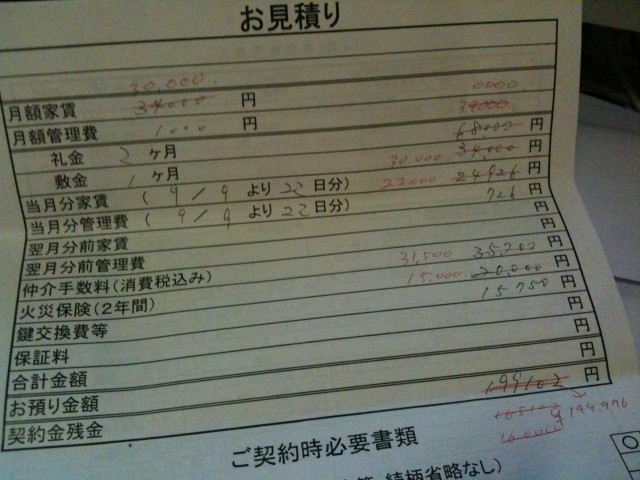 お見積り
30,000.
月額家賃 34000 円 0000.
月額管理費 1000 円 34000.
礼金 2 ヶ月 68000 円
敷金 1 ヶ月 30.000 34,000 円
当月分家賃 ( 9 / 9 より 22 日分) 22.000 24926 円
当月分管理費 ( 9 / 9 より 22 日分) 726 円
翌月分前家賃 円
翌月分前管理費 円
仲介手数料(消費税込み) 31,500 35,700 円
火災保険(2年間) 15.000 20,000 円
鍵交換費等 15750 円
保証料 円
合計金額 円
お預り金額 円
契約金残金 199102 円
165102
144.976
ご契約時必要書類
続柄省略なし)